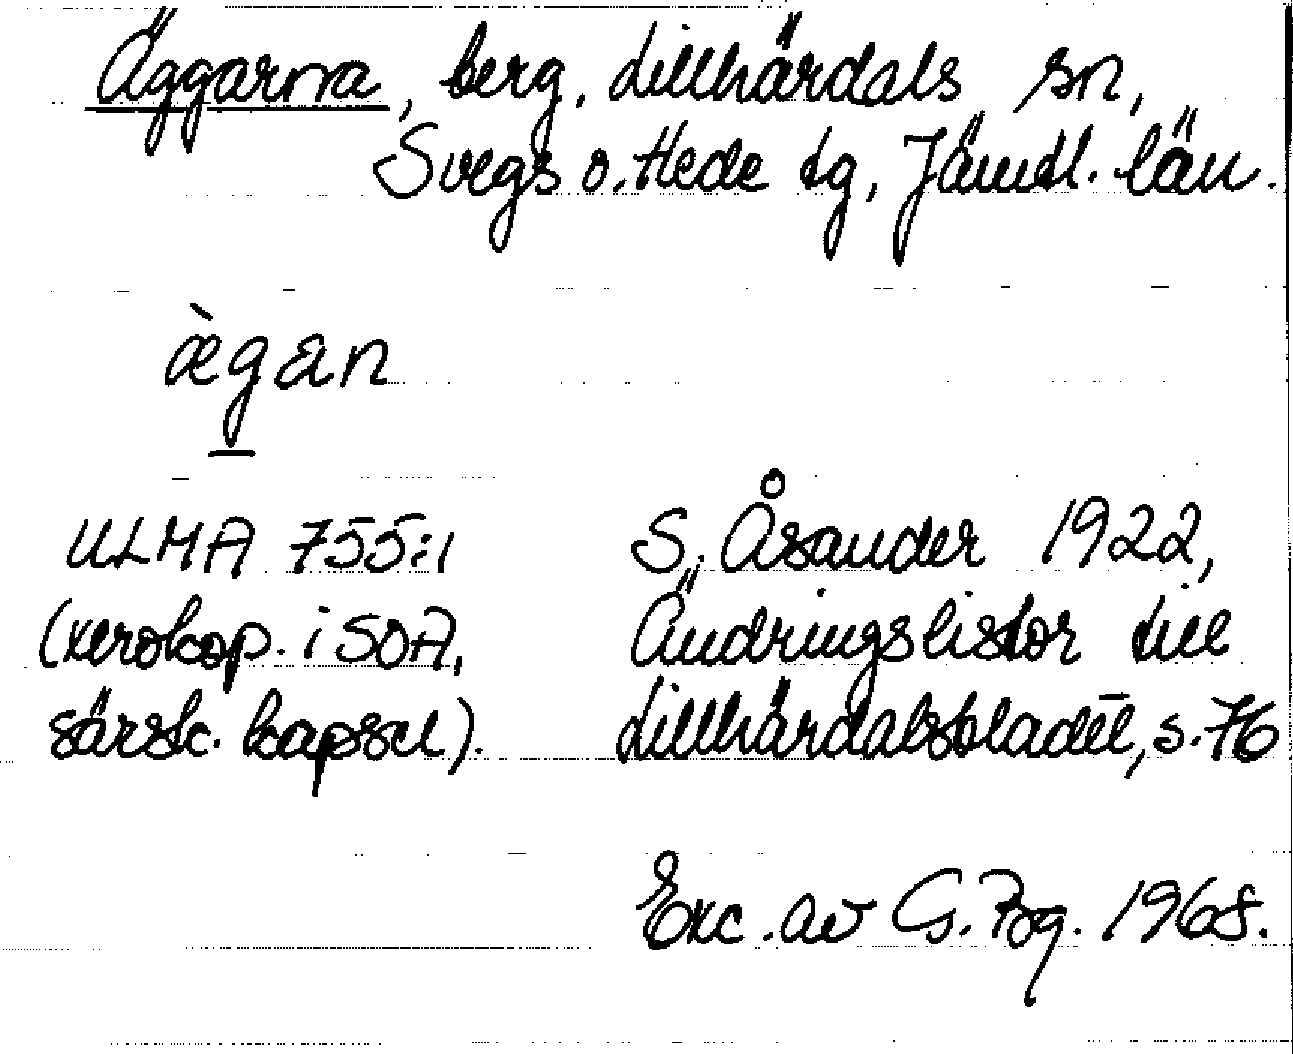 Äggarna, berg, Lillhärdals sn,
Svegs o. Hede tg, Jämtl. län.
ægan
ULMA 755:1
(xerokop. i SOA,
särsk. kapsel).
S. Åsander 1922,
Ändringslistor till
Lillhärdalsbladet, s. 76
Exc. av G. 1968.